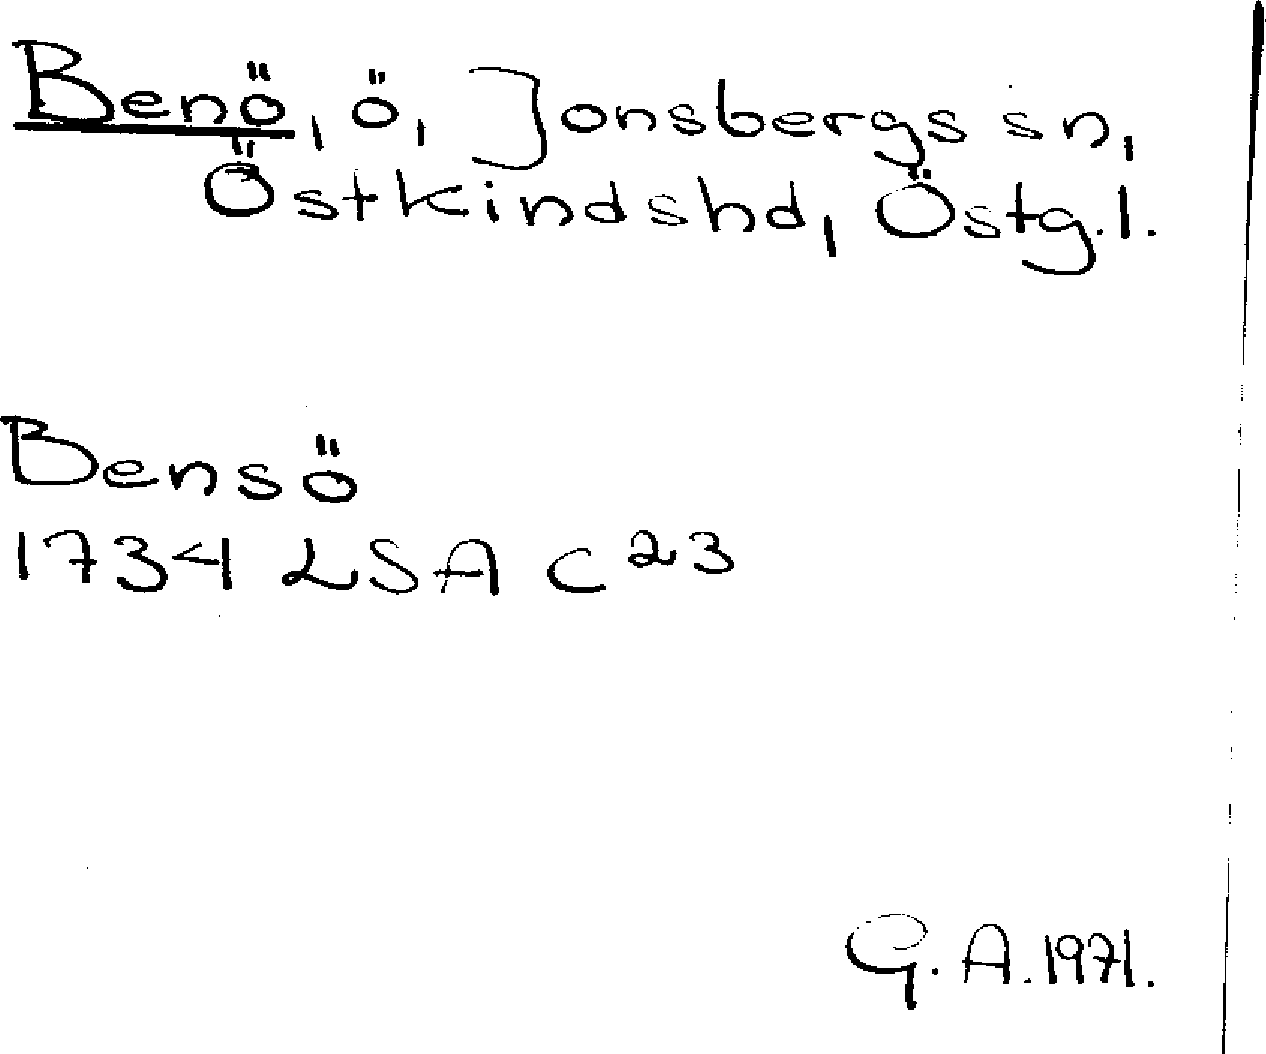 Benö, ö, Jonsbergs sn,
Östkinds hd, Östg.l.
Bensö
1734 LSA C 23
G. A. 1971.